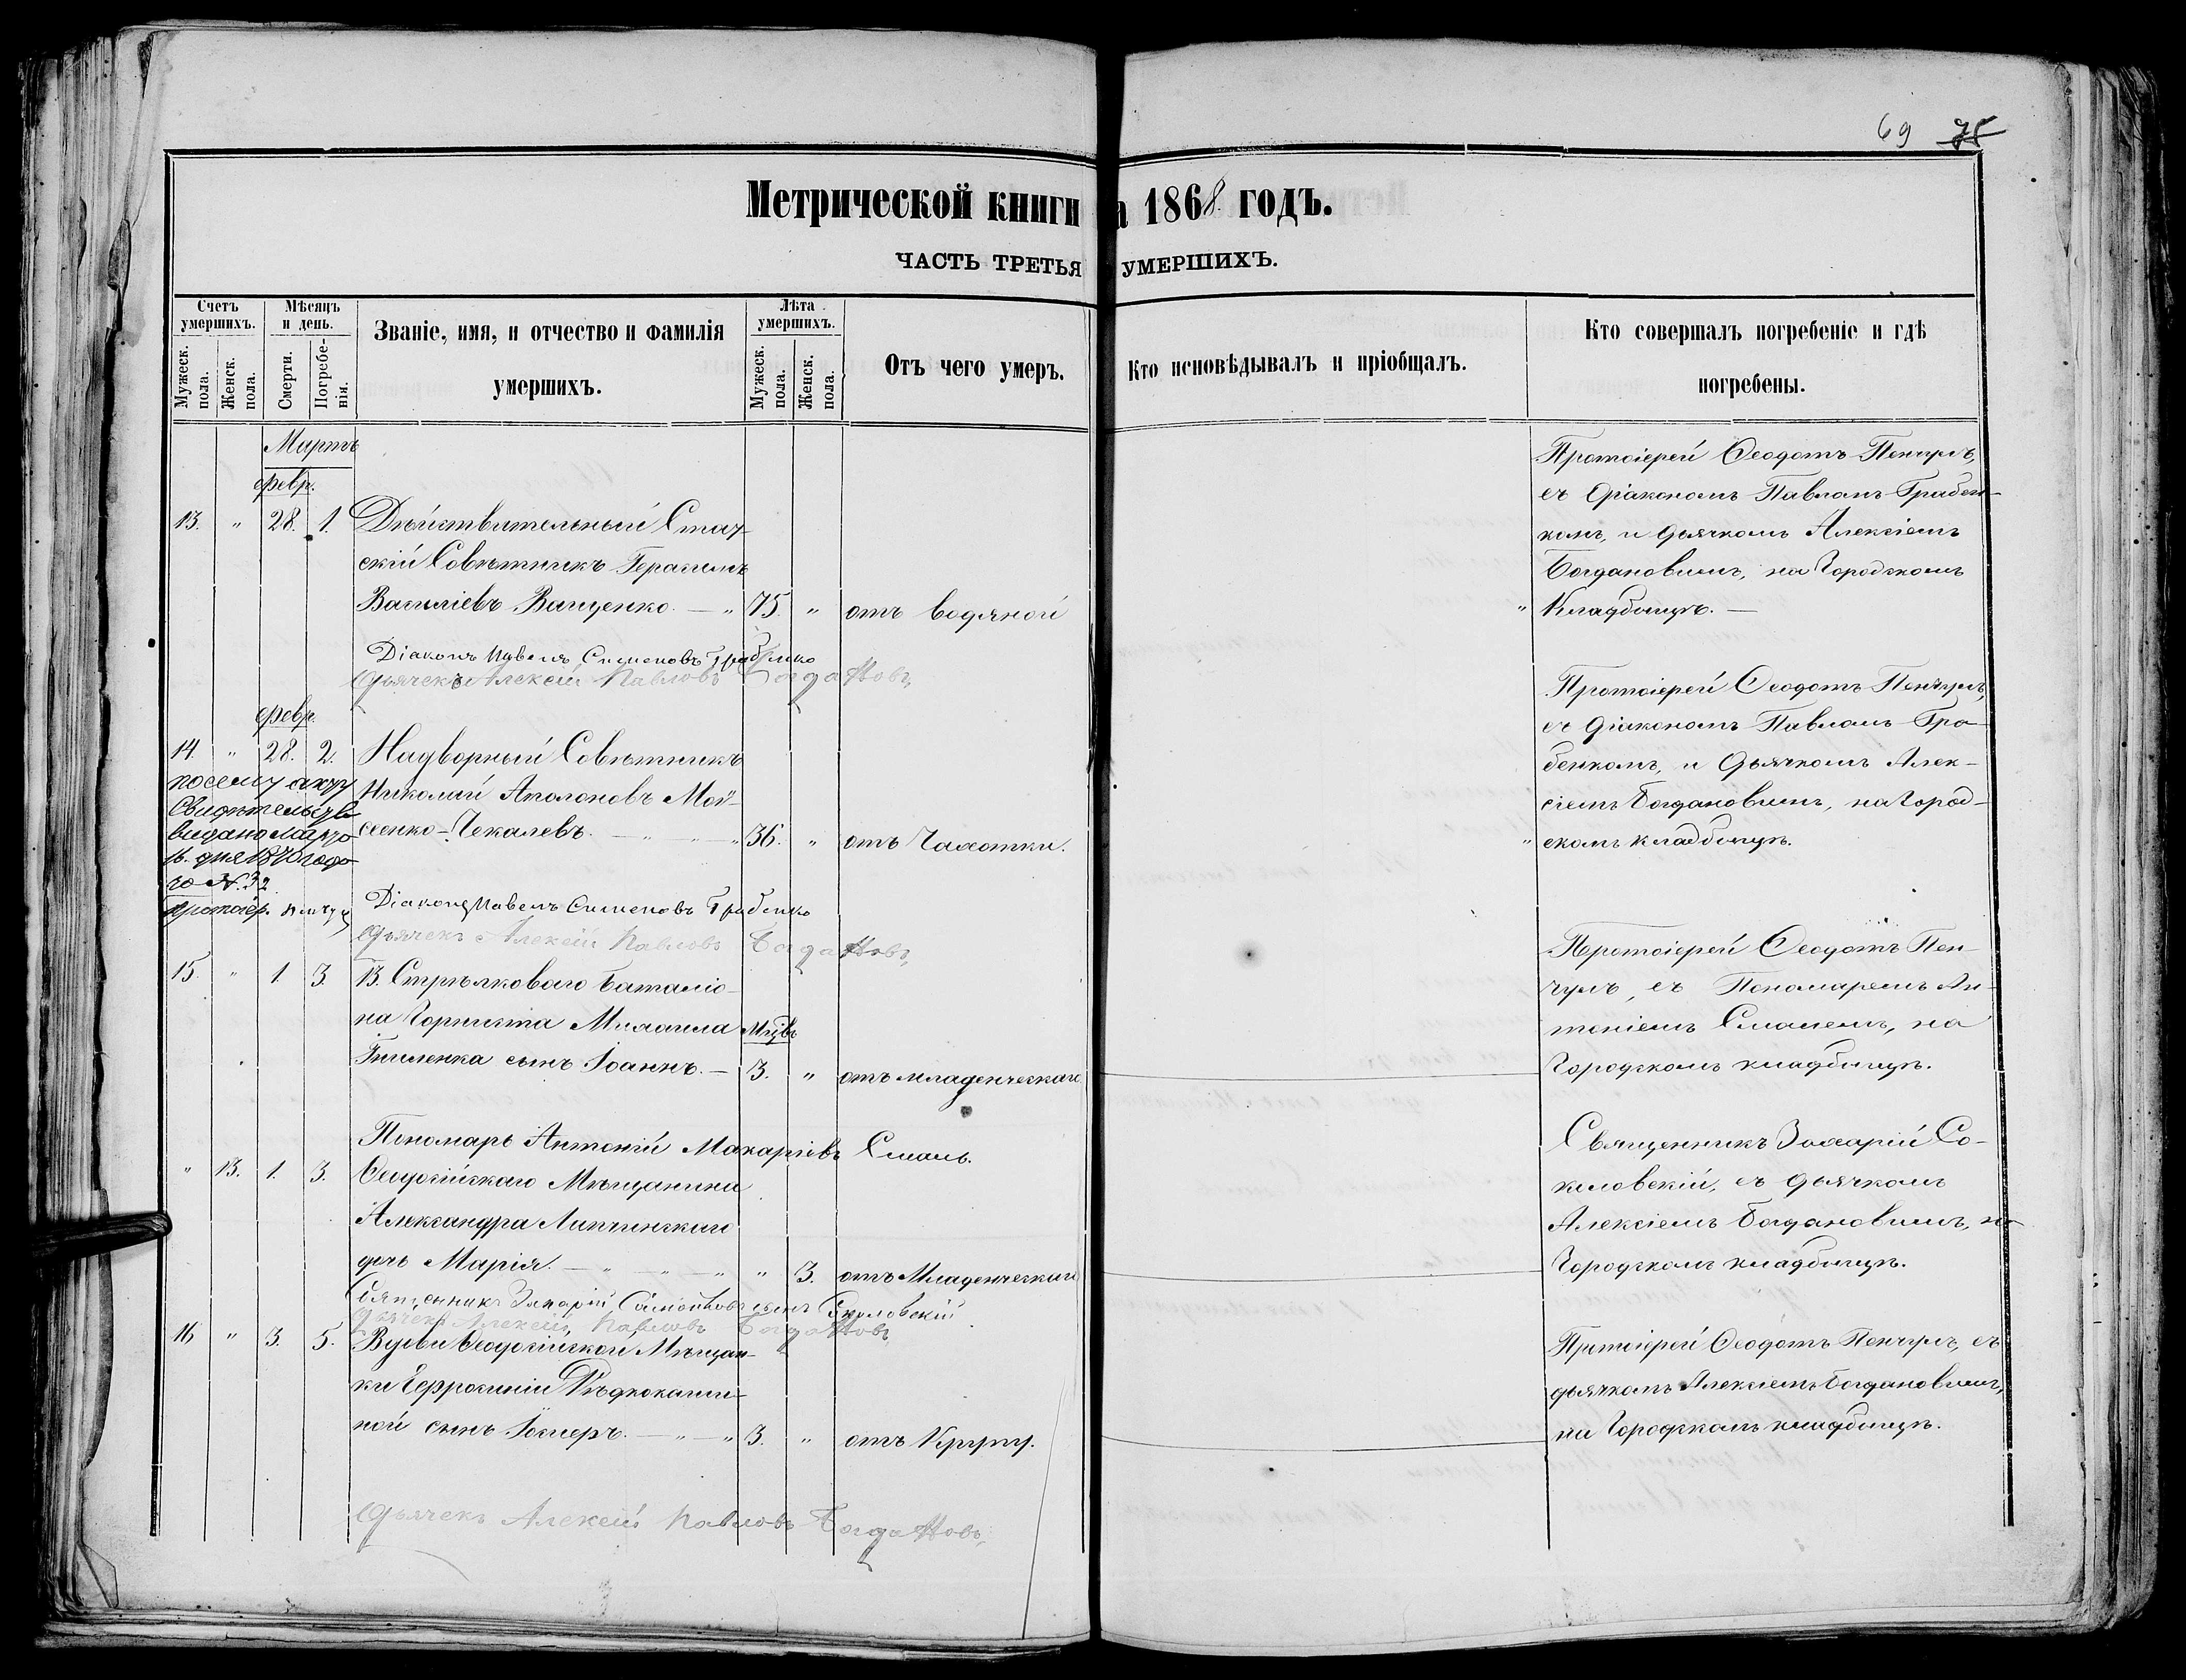 69 75
Метрической книги а 1868 годъ.
ЧАСТЬ ТРЕТЬЯ УМЕРШИХЪ.
Счетъ умершихъ.
Мужеск. пола.
Женск. пола.
Мѣсяцъ и день.
Смерти.
Погребенія.
Званіе, имя, и отчество и фамилія умершихъ.
Лѣта умершихъ.
Мужеск. пола.
Женск. пола.
Отъ чего умеръ.
Кто исповѣдывалъ и пріобщалъ.
Кто совершалъ погребеніе и гдѣ погребены.
Мартъ
февр.
13. " 28. 1. Дѣйствительный Стат-
скій Совѣтникъ Герасимъ
Василіевъ Ващенко. — " 75. " отъ водяной
Протоіерей Ѳеодотъ Пенчулъ,
съ Діакономъ Павломъ Грабен-
комъ, и дьячкомъ Алексіемъ
Богдановимъ, на Городскомъ
" Кладбищѣ. —
Діаконъ Павелъ Симеоновъ Грабенко
Дьячекъ Алексій Павловъ Богдановъ,
февр.
14. " 28. 2. Надворный Совѣтникъ
Николай Аполоновъ Мой-
сеенко-Чекалевъ. — " — " 36. " отъ Чахотки.
Протоіерей Ѳеодотъ Пенчулъ,
съ діакономъ Павломъ Гра-
бенкомъ, и дьячкомъ Алек-
сіемъ Богдановимъ, на Город-
" скомъ кладбищѣ.
по сему акту
Свидѣтельств
видано марта
16. дня 1870 года
за №. 32
Протоіер. Пенчул
Діаконъ Павелъ Симеоновъ Грабенко
Дьячекъ Алексій Павловъ Богдановъ,
15. " 1. 3. 13. Стрѣлковаго баталіо-
на Горниста Михаила Мцвъ
Гниленка сынъ Іоаннъ. — 3. " отъ младенческаго
Протоіерей Ѳеодотъ Пен-
чулъ, съ Пономаремъ Ан-
тоніемъ Смалемъ, на
Городскомъ кладбищѣ.
Пономарь Антоній Макаріевъ Смаль.
" 13. 1. 3. Ѳеодосійскаго Мѣщанина
Александра Липчинскаго
дочь Марія. — " — " — " " 3. отъ Младенческаго
Священникъ Захарій Со-
коловскій, съ дьячкомъ
Алексіемъ Богдановимъ, на
Городскомъ кладбищѣ.
Священникъ Захарій Самойловъ сынъ Соколовскій
Дьячекъ Алексій Павловъ Богдановъ,
16 " 3. 5. Вдовы Ѳеодосійской Мѣщан-
ки Евфросиніи Рѣдкокаши-
ной сынъ Іосифъ. — " — " 3. " отъ Крупу.
Протоіерей Ѳеодотъ Пенчулъ, съ
дьячкомъ Алексіемъ Богдановимъ,
на Городскомъ кладбищѣ.
Дьячекъ Алексій Павловъ Богдановъ,